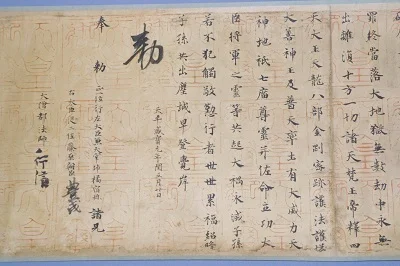 罪終當落大地獄無數劫中永無
出離復十方一切諸天梵王帝釋四
天大王天龍八部金剛密跡護法護塔
大善神王及普天率土有大威力天
神地祇七廟尊靈并佐命立功大
臣將軍之靈等共起大禍永滅子孫
若不犯觸敬懃行者世世累福紹隆
子孫共出塵城早登覺岸
天平感寶元年閏五月廿日
勅
奉 勅 正一位行左大臣兼大宰帥橘宿祢 諸兄
右大臣從二位藤原朝臣豐成
大僧都法師行信